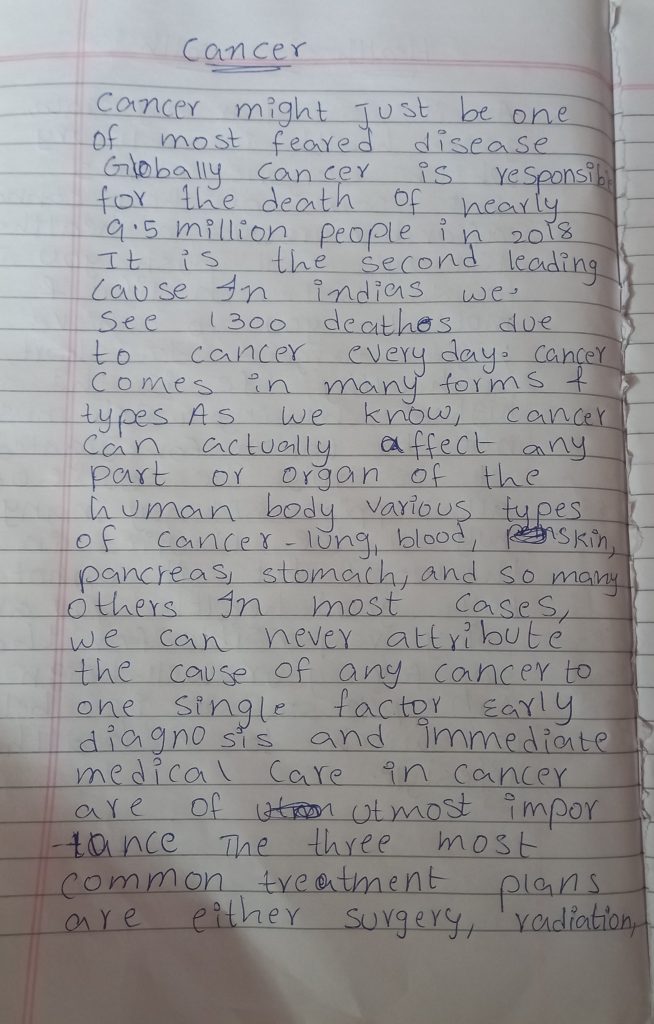 Cancer
cancer might just be one
of most feared disease
Globally cancer is responsible
for the death of nearly
9.5 million people in 2018
It is the second leading
cause In indias we.
see 1300 deathes due
to cancer every day. cancer
comes in many forms &
types As we know, cancer
can actually affect any
part or organ of the
human body various types
of cancer - lung, blood, skin,
pancreas, stomach, and so many
others In most cases,
we can never attribute
the cause of any cancer to
one single factor Early
diagnosis and immediate
medical care in cancer
are of utmost impor
-tance The three most
common treatment plans
are either surgery, radiation,